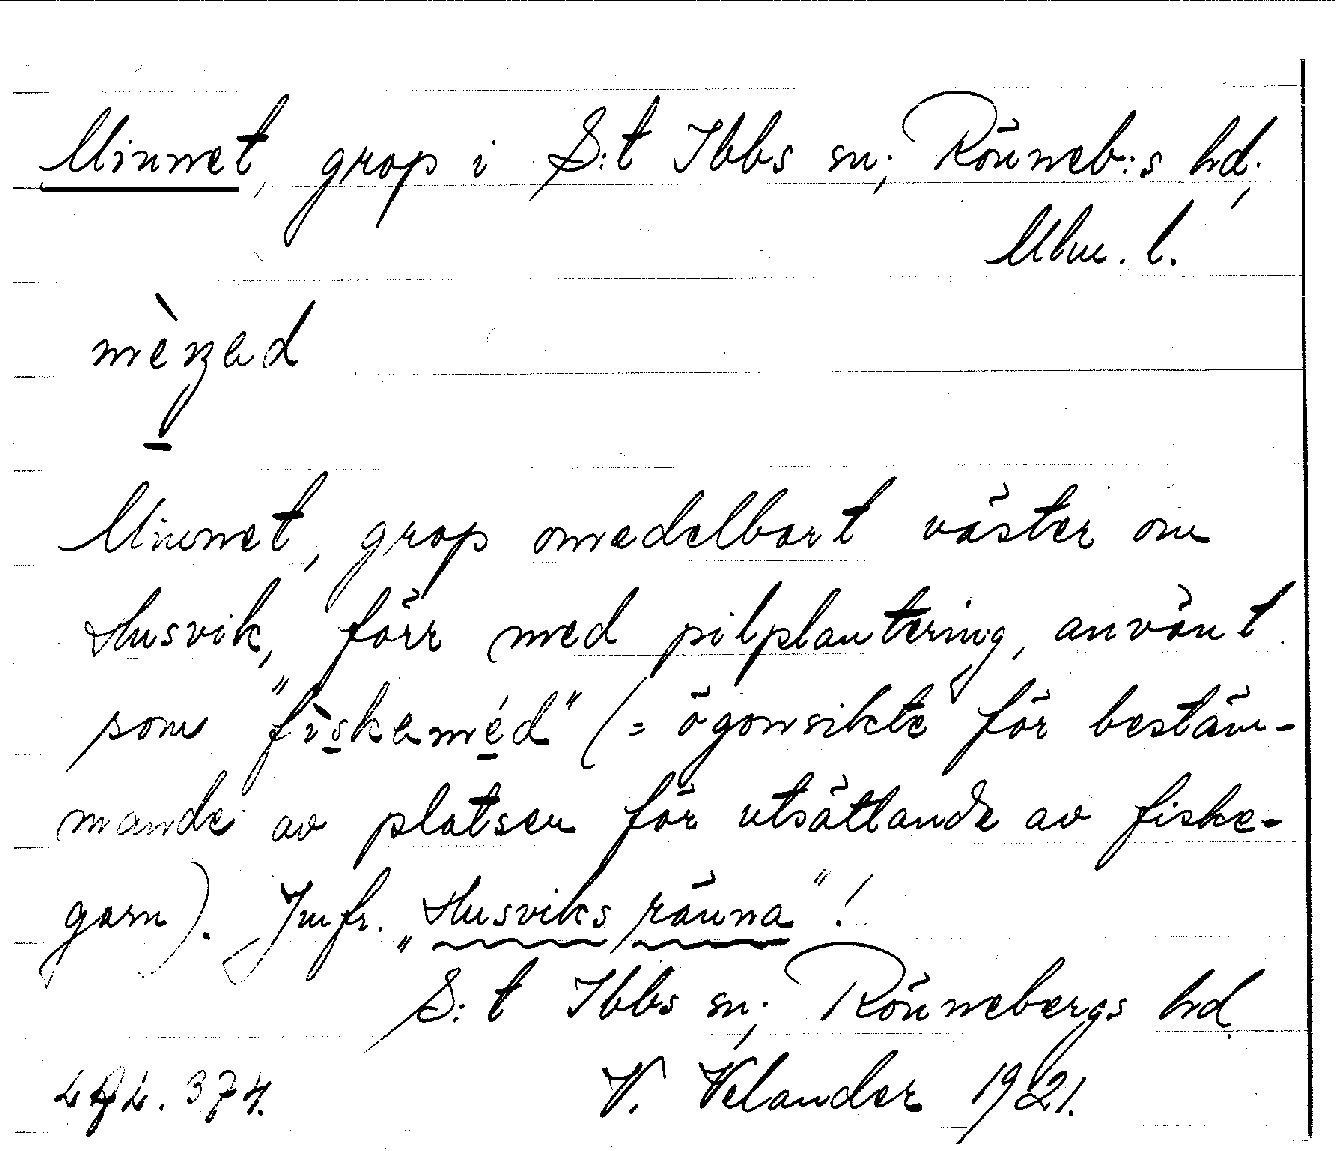 Minnet, grop i S:t Ibbs sn; Rönneb:s hd;
Mlm. l.
Minnet, grop omedelbart väster om
Husvik, förr med pilplantering, använt
som "fiskeméd" (= ögonsikte för bestäm-
mande av platsen för utsättande av fiske-
garn). Jmfr. „Husviks ränna"!
S:t Ibbs sn; Rönnebergs hd.
374. V. Velander 1921.